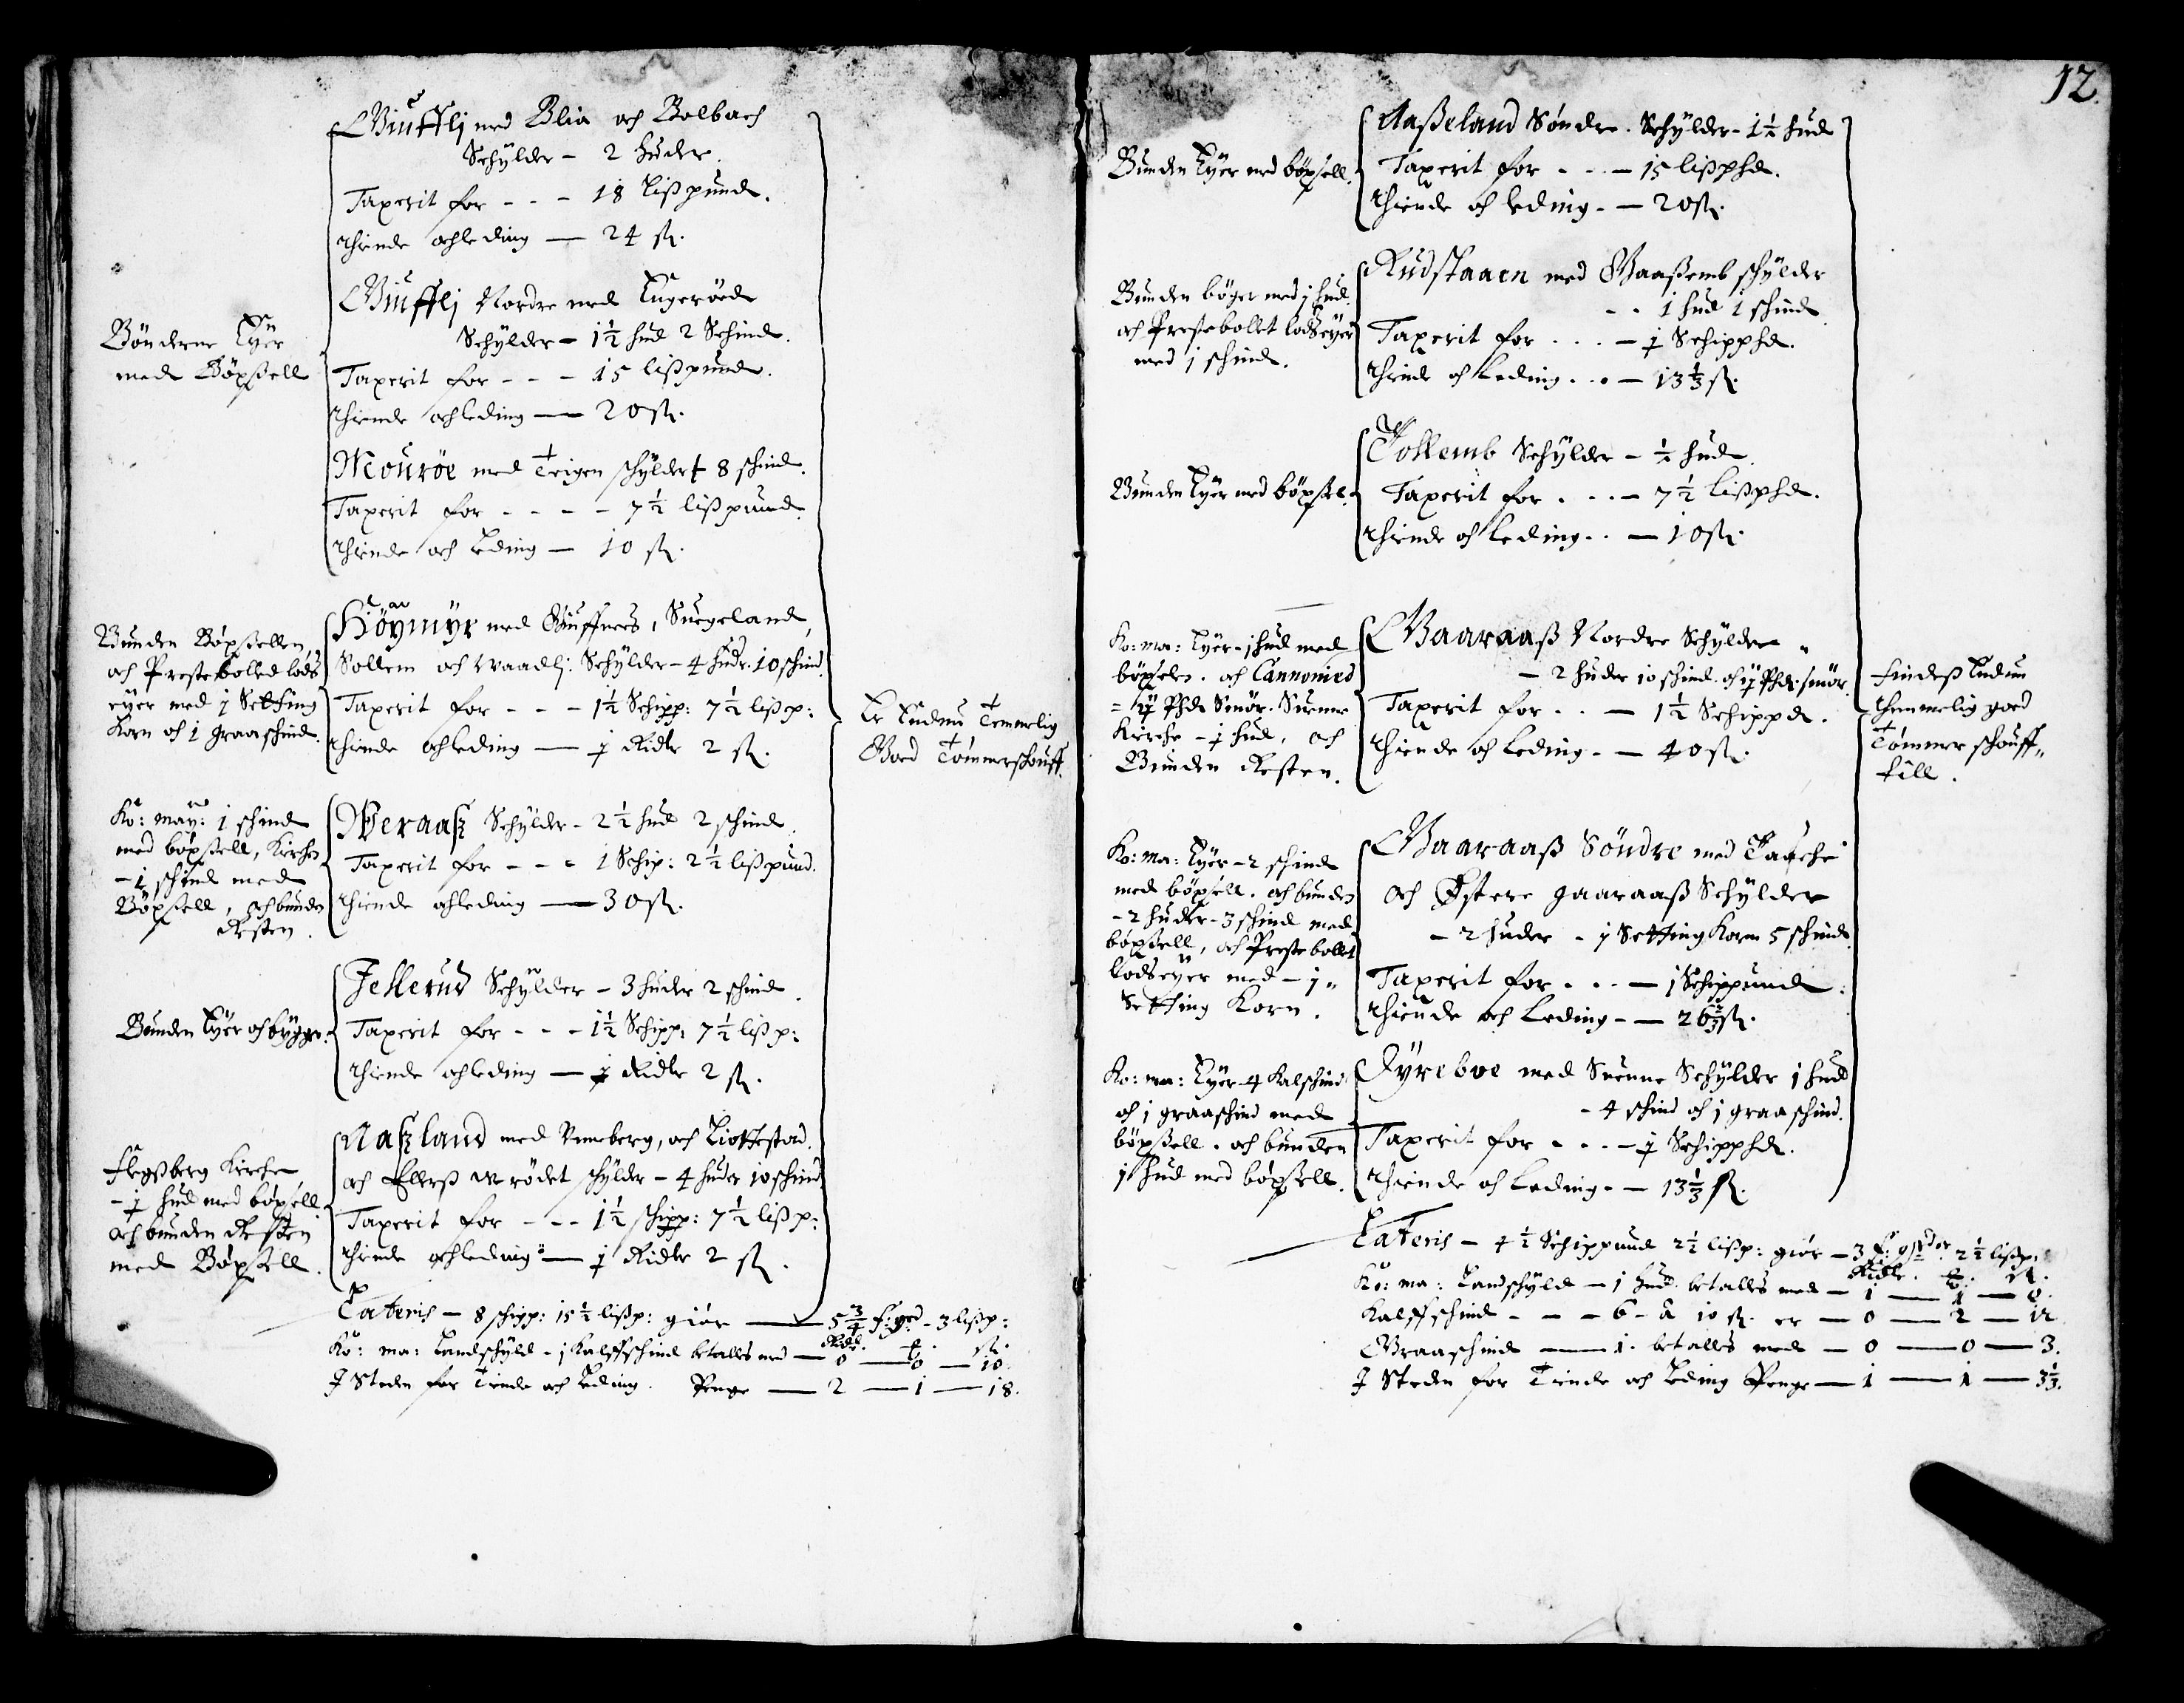 Gÿufflj med Blia och Bolbach
Schÿlder - 2 huder.
Taxerit for - - - 18 Lißpund.
Thiende och leding — 24 sk.
Bönderne Eÿer
med Böxßell
Giufflj Nordre med
Schÿlder - 1½ hud 2 Schind.
Taxerit for - - - 15 lißpund.
Thiende och leding — 20 sk.
Mouröe med Teigen schÿlder 8 schind.
Taxerit for - - - - 7½ lißpund.
Thiende och Leding — 10 sk.
Bunden Böxßellen,
och Prestebolled lods
eÿer med j Setting
Korn och 1 graaschind.
Höÿmÿr med Guffnes, Suegeland,
Sollem och Waadlj: Schÿlder - 4 hudr. 10 schind.
Taxerit for - - - 1½ Schipp: 7½ lißp:
Thiende och leding — j Ridlr 2 sk.
Er Endnu Temmelig
Goed Tömmerschouff.
Ko: maÿ: 1 schind
med böxßell, Kirchen
- 1 schind med
Böxßell, och bunden
Resten.
Weraaß Schÿlder - 2½ hud 2 schind.
Taxerit for - - - 1 Schip: 2½ lißpund.
Thiende och leding — 30 sk.
Bunden Eÿer och bÿgger.
Jellerud Schÿlder - 3 huder 2 schind.
Taxerit for - - - 1½ Schipp: 7½ lißp:
Thiende och leding — j Ridlr 2 sk.
Flegßberg Kirche
- j hud med böxßell.
och bunden Resten
med Böxßell.
Naßland med Vnneberg, och Liottestad.
och Ellerß rödet schÿlder - 4 huder 10 schind
Taxerit for - - - 1½ schipp: 7½ lißp:
Thiende och leding — j Ridlr 2 sk.
Lateris - 8 schipp: 15½ lißp: giör — 5¾ f: grd - 3 lißp:
Ridlr. sk.
Ko: ma: Landschÿld - j Kalffschind betalles med — 0 — 0 — 10.
J Steden for Tiende och Leding. Penge — 2 — 1 — 18.
12.
Bunden Eÿer med böxßell.
Aaßeland Söndre. Schÿlder - 1½ hud
Taxerit for - - - 15 lißphd.
Thiende och leding - — 20 sk.
Bunden böger med j hud.
och Prestebollet lodseÿer
med j schind.
Rudstaaen med Gaaßemb schÿlder
- - 1 hud 1 schind
Taxerit for - - - j Schipphd.
Thiende och Leding - - — 13⅓ sk.
Bunden Eÿer med böxßel.
Tollemb Schÿlder - ½ hud.
Taxerit for - - - 7½ lißphd.
Thiende och leding - - — 10 sk.
Ko: ma: Eÿer - j hud med
böxßelen. och Cannonied
- Phd Smör. Suenne
Kirche - j hud, och
Bunden Resten.
Gaaraaß Nordre Schÿlder
— 2 huder 10 schind. och Phd. smör.
Taxerit for - - — 1½ Schippd.
Thiende och leding - — 40 sk.
Findeß Endnu
themmelig goed
Tömmer schouff„
till.
Ko: ma: Eÿer - 2 schind
med böxßell. och bunden
- 2 huder - 3 schind med
böxßell, och Prestebollet
lodseÿer med - j„
Setting Korn.
Gaaraaß Söndre med
och Östere Gaaraaß Schÿlder
- 2 huder - j Setting Korn 5 schind.
Taxerit for - - - j Schippund.
Thiende och Leding - — 26⅔ sk.
Ko: ma: Eÿer - 4 Kalschind
och j graaschind med
böxßell. och bunden
j hud med böxßell.
Fÿreboe med Suenne Schÿlder j hud
- 4 schind och j graaschind.
Taxerit for - - - j Schipphd.
Thiende och Leding - — 13⅓ sk.
Lateris - 4½ Schippund 2½ lißp: giör - 3 f: grder 2½ lißp:
Ridlr. sk.
Ko: ma: Landschÿld - 1 hud betalles med — 1 — 1 — 0.
Kalffschind - - - 6 - à 10 sk. er — 0 — 2 — 12
Graaschind — 1. betalles med — 0 — 0 — 3.
J Steden for Tiende och Leding Penge — 1 — 1 — 3⅓.